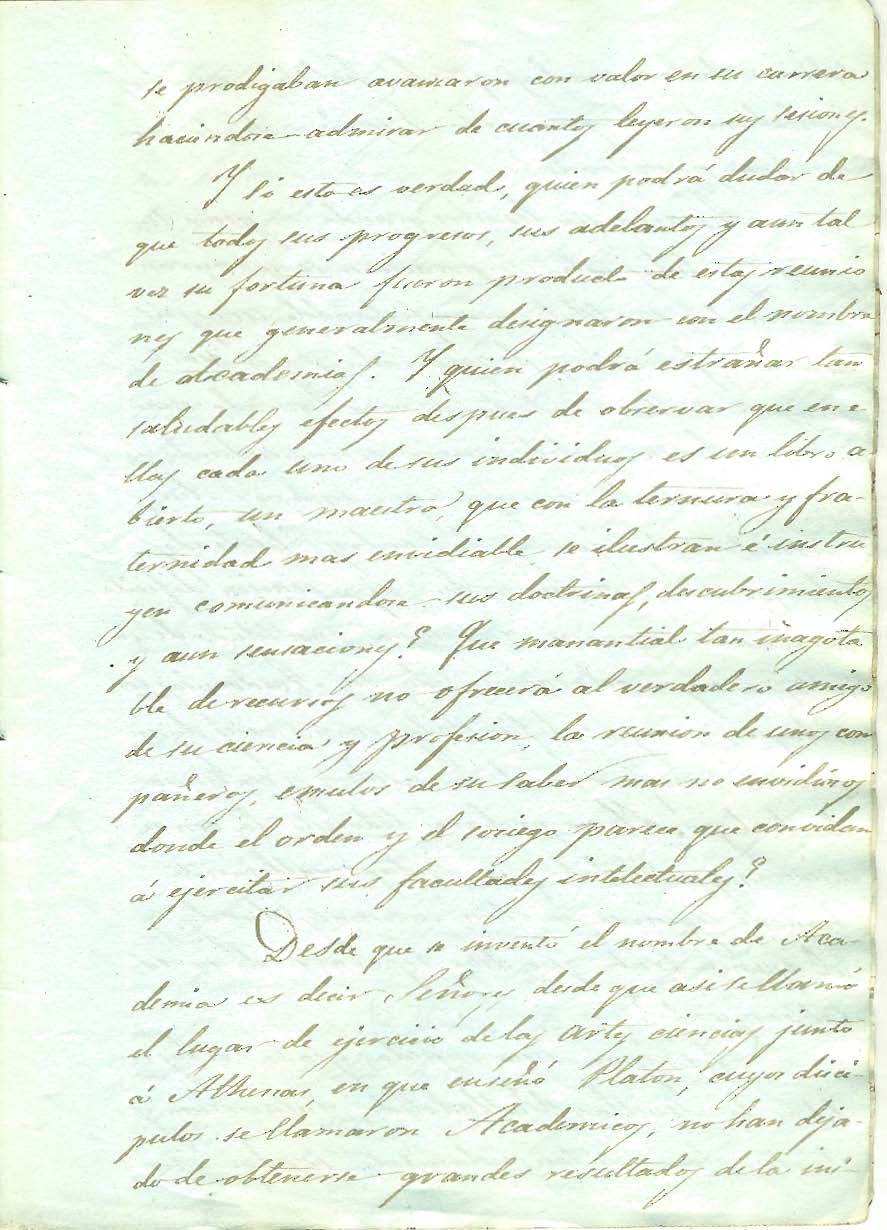 se prodigaban avanzaron con valor en su carrera
haciendose admirar de cuantos leyeron sus sesiones.
Y si esto es verdad, quien podrá dudar de
que todos sus progresos, sus adelantos y aun tal
vez su fortuna fueron producto de estas reunio
nes que generalmente designaron con el nombre
de Academias. Y quien podrá estrañar tan
saludables efectos despues de observar que en e-
llas cada uno de sus individuos es un libro a-
bierto, un maestro, que con la ternura y fra-
ternidad mas envidiable se ilustran é instru
yen comunicandose sus doctrinas, descubrimientos
y aun sensaciones? Que manantial tan inagota
ble de recursos no ofrecerá al verdadero amigo
de su ciencia y profesion, la reunion de unos com
pañeros, emulos de su saber mas no envidiosos
donde el orden y el sociego parece que convidan
á ejercitar sus facultades intelectuales?
Desde que se inventó el nombre de Aca-
demia es decir Señores, desde que asi se llamó
el lugar de ejercicio de las artes ciencias junto
á Athenas, en que enseñó Platon, cuyos disci-
pulos se llamaron Academicos, no han deja-
do de obtenerse grandes resultados de la ins-